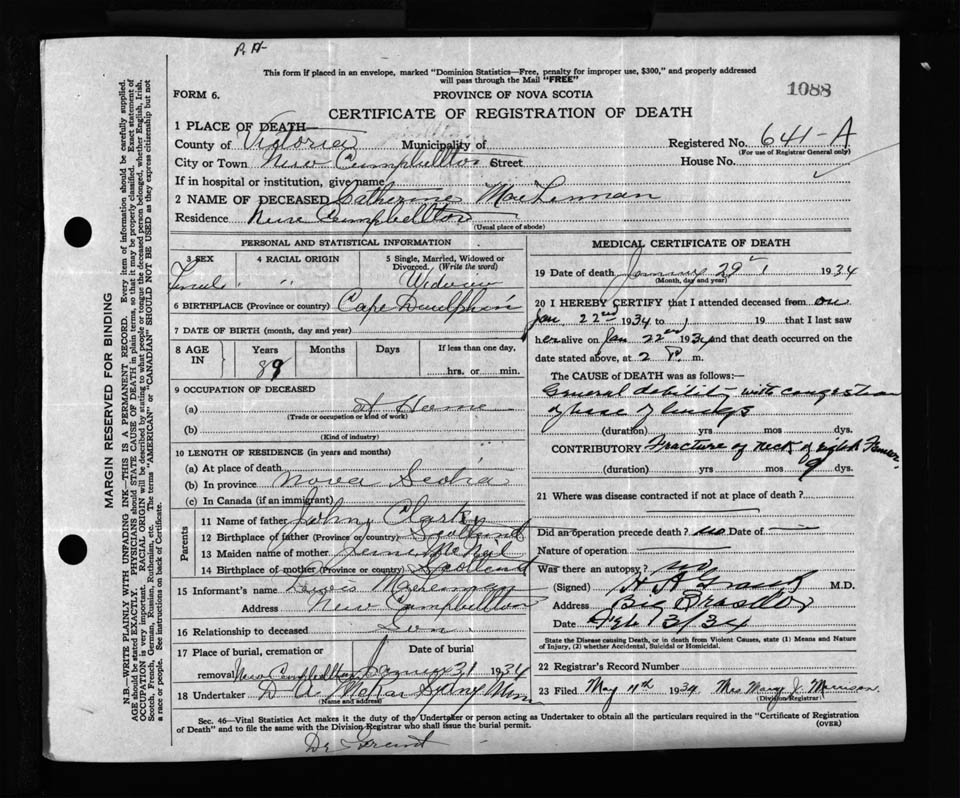 P. H-
This form if placed in an envelope, marked "Dominion Statistics—Free, penalty for improper use, $300," and properly addressed
will pass through the Mail "FREE"
FORM 6.
PROVINCE OF NOVA SCOTIA
1088
CERTIFICATE OF REGISTRATION OF DEATH
1 PLACE OF DEATH
County of Victoria Municipality of Registered No. 641-A
(For use of Registrar General only)
City or Town New Campbellton Street House No.
If in hospital or institution, give name
2 NAME OF DECEASED Catherine MacLennan
Residence New Campbellton
(Usual place of abode)
PERSONAL AND STATISTICAL INFORMATION
3 SEX 4 RACIAL ORIGIN 5 Single, Married, Widowed or
Divorced. (Write the word)
Female " " Widow
6 BIRTHPLACE (Province or country) Cape Daulphin
7 DATE OF BIRTH (month, day and year)
8 AGE IN Years Months Days If less than one day,
89 hrs. or min.
9 OCCUPATION OF DECEASED
(a) at Home
(Trade or occupation or kind of work)
(b)
(Kind of industry)
10 LENGTH OF RESIDENCE (in years and months)
(a) At place of death
(b) In province Nova Scotia
(c) In Canada (if an immigrant)
Parents
11 Name of father John Clark
12 Birthplace of father (Province or country) Scotland
13 Maiden name of mother McNeil
14 Birthplace of mother (Province or country) Scotland
15 Informant's name
Address New Campbellton
16 Relationship to deceased Son
17 Place of burial, cremation or Date of burial
removal New Campbellton January 31 1934
18 Undertaker Sydney Mines
(Name and address)
MEDICAL CERTIFICATE OF DEATH
19 Date of death January 29 1934
(Month, day and year)
20 I HEREBY CERTIFY that I attended deceased from on
Jan 22nd 1934 to 19 that I last saw
her alive on Jan 22nd 1934 and that death occurred on the
date stated above, at 2 P. m.
The CAUSE of DEATH was as follows:—
General debility with congestion
of base of lungs
(duration) yrs mos dys.
CONTRIBUTORY Fracture of neck of right Femur.
(duration) yrs mos 9 dys.
21 Where was disease contracted if not at place of death?
Did an operation precede death? no Date of
Nature of operation
Was there an autopsy? no
(Signed) M.D.
Address Big Bras d'Or
Date Feb 13/34
State the Disease causing Death, or in death from Violent Causes, state (1) Means and Nature
of Injury, (2) whether Accidental, Suicidal or Homicidal.
22 Registrar's Record Number
23 Filed May 11th 1934. Mrs Mary J. Morrison
(Division Registrar)
Sec. 46—Vital Statistics Act makes it the duty of the Undertaker or person acting as Undertaker to obtain all the particulars required in the "Certificate of Registration
of Death" and to file the same with the Division Registrar who shall issue the burial permit.
(OVER)
Dr Grant
MARGIN RESERVED FOR BINDING
N.B.—WRITE PLAINLY WITH UNFADING INK—THIS IS A PERMANENT RECORD. Every item of information should be carefully supplied.
AGE should be stated EXACTLY. PHYSICIANS should STATE CAUSE OF DEATH in plain terms, so that it may be properly classified. Exact statement of
OCCUPATION is very important. RACIAL ORIGIN will be described by stating to what people or tongue the deceased person belonged, whether English, Irish,
Scotch, French, German, Russian, Ruthenian, etc. The terms "AMERICAN" or "CANADIAN" SHOULD NOT BE USED as they express citizenship but not
a race or people. See instructions on back of Certificate.